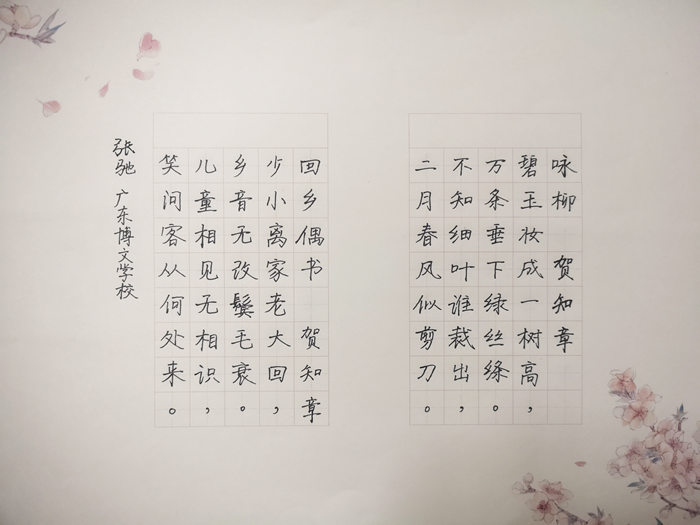 咏柳 贺知章
碧玉妆成一树高，
万条垂下绿丝绦。
不知细叶谁裁出，
二月春风似剪刀。
回乡偶书 贺知章
少小离家老大回，
乡音无改鬓毛衰。
儿童相见无相识，
笑问客从何处来。
张驰 广东博文学校